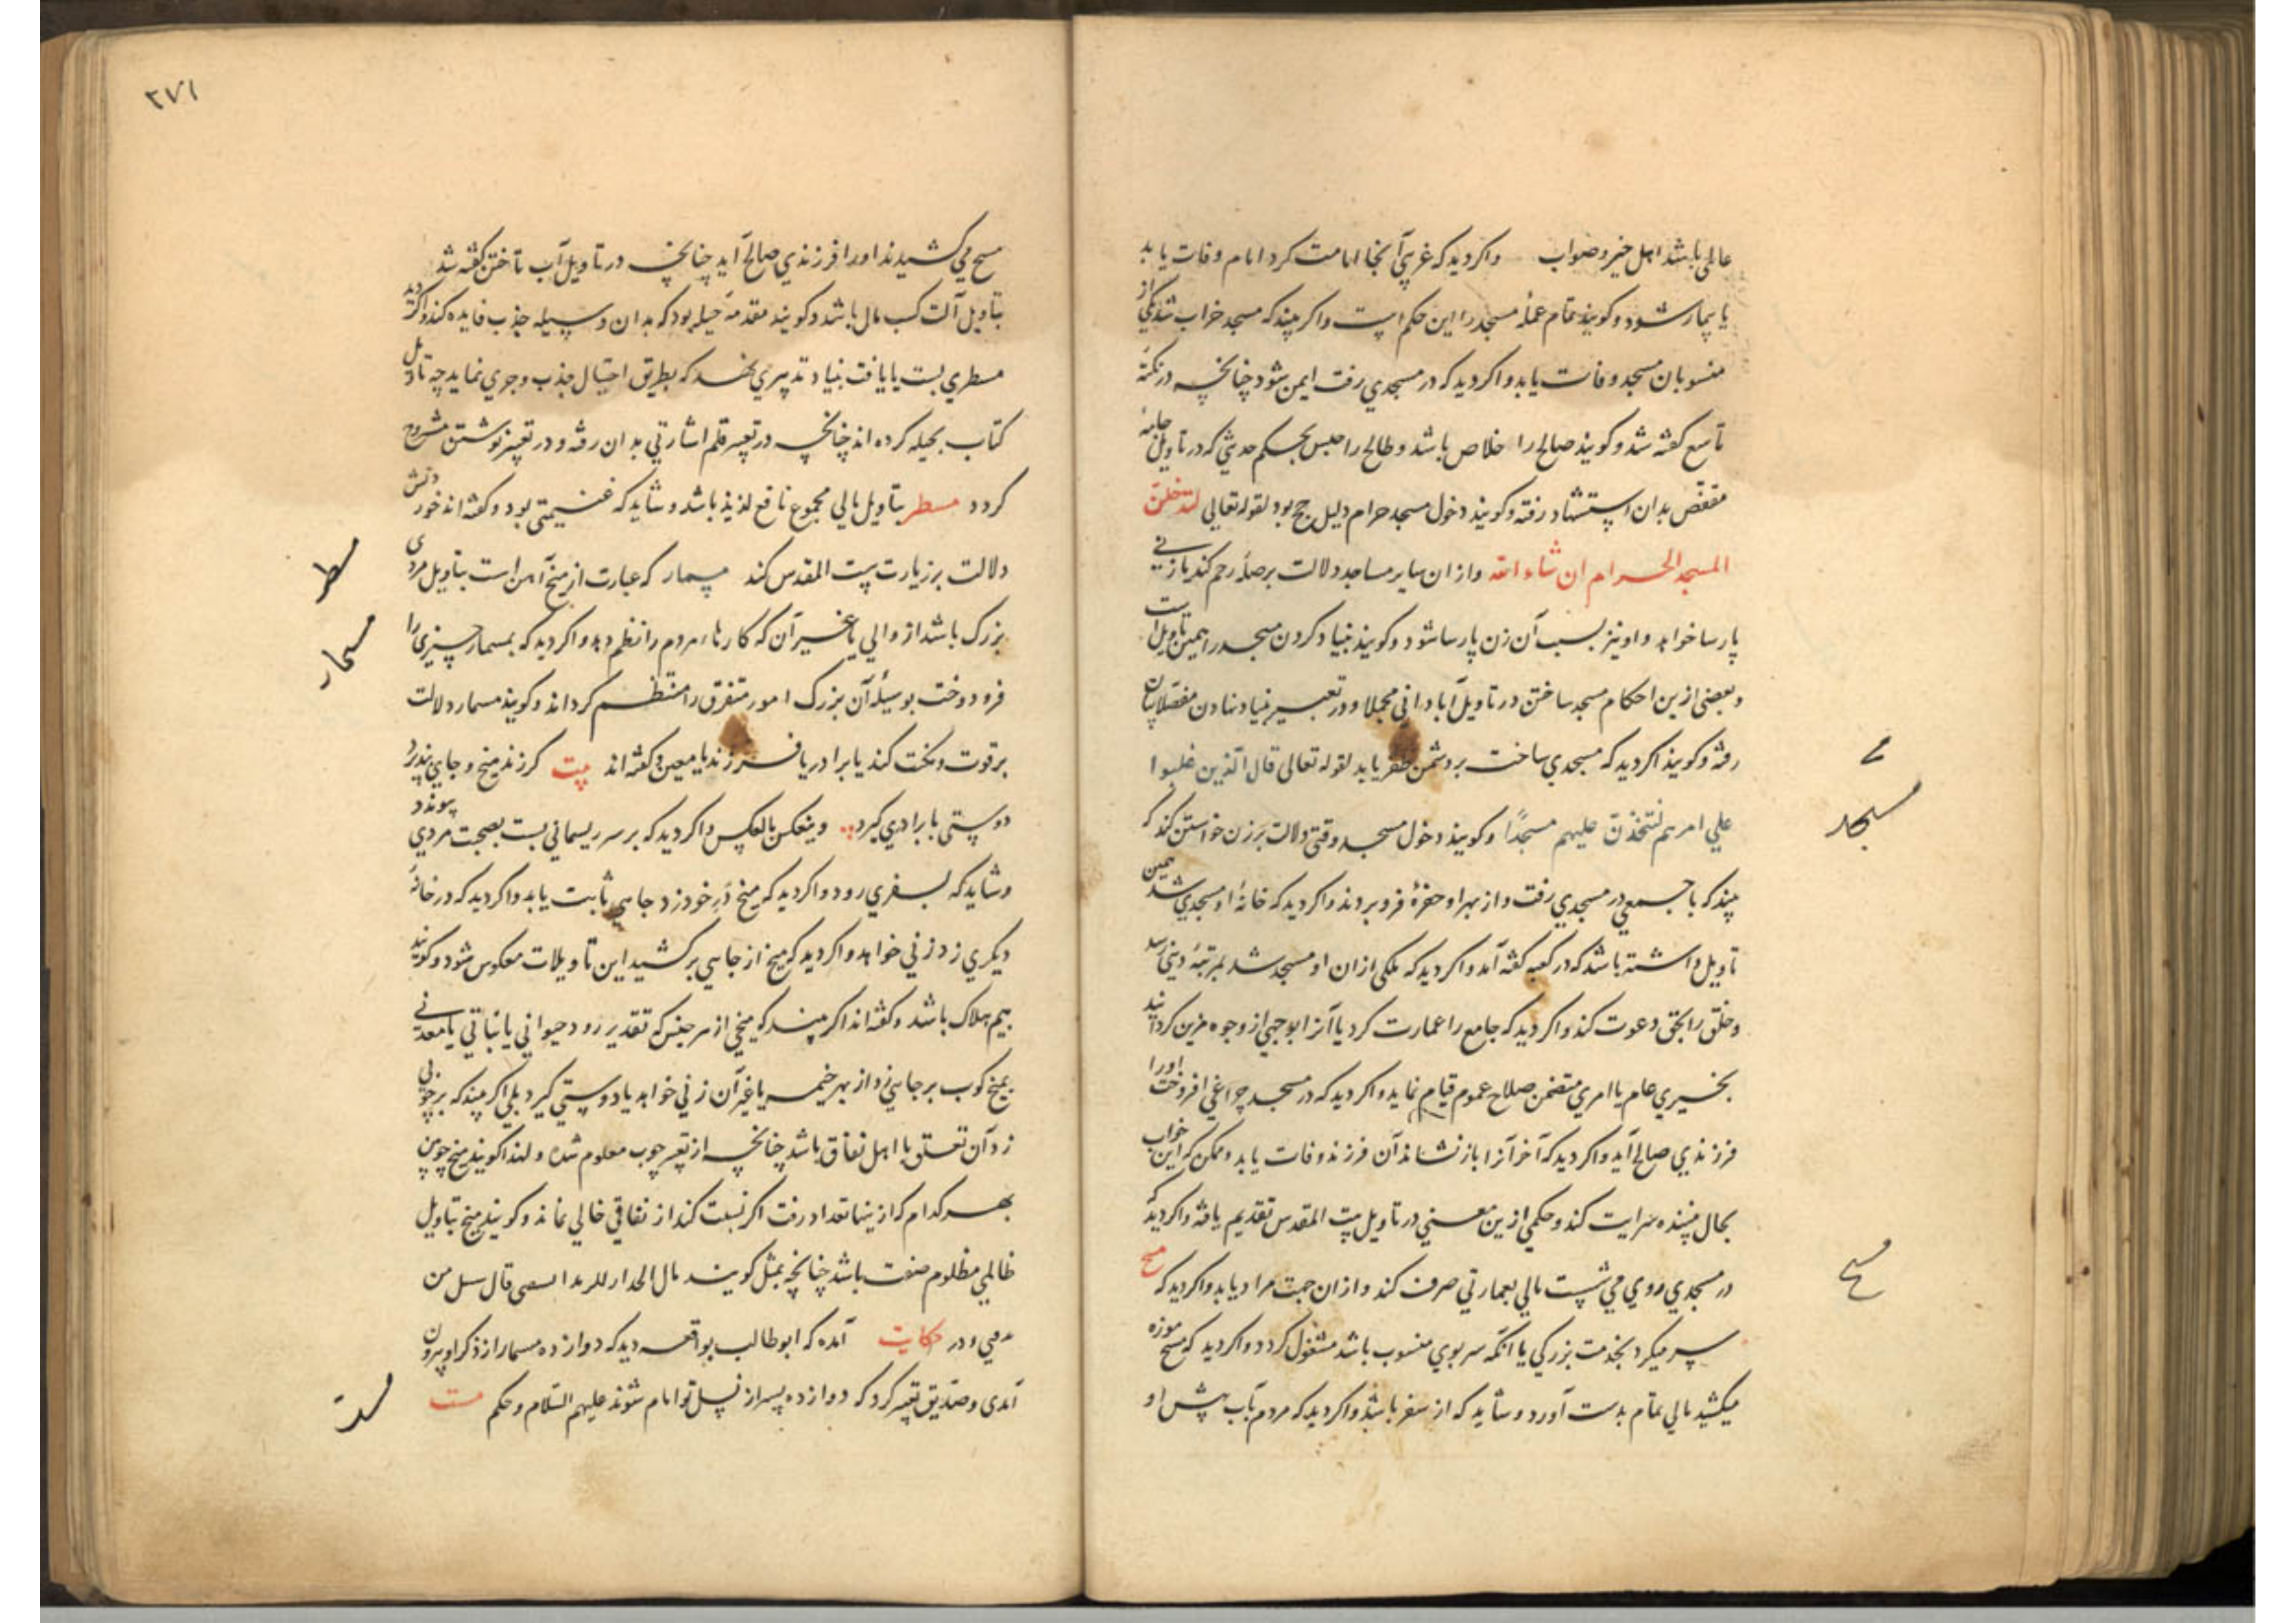 عالمی باشد اهل خیر و صواب واکر دید که غریبی آنجا امامت کرد امام وفات یابد
یا بیمار شود و کویند تمام عملهٔ مسجد را این حکم است واکر بیند که مسجد خراب شد یکی از
منسوبان مسجد وفات یابد واکر دید که در مسجدی رفت ایمن شود چنانچه در نکتهٔ
تاسع کفته شد و کویند صالح را خلاص باشد و طالح را حبس بحکم حدیثی که در تاویل جامهٔ
مقفص بدان استشهاد رفته و کویند دخول مسجد حرام دلیل حج بود لقوله تعالی لتدخلن
المسجد الحرام ان شاء الله و از ان سایر مساجد دلالت بر صلهٔ رحم کند یا زنی
پارسا خواهد و او نیز بسبب آن زن پارسا شود و کویند بنیاد کردن مسجد را همین تاویل است
و بعضی ازین احکام مسجد ساختن در تاویل آبادانی مجملا و در تعبیر بنیاد نهادن مفصلا بیان
رفته و کویند اکر دید که مسجدی ساخت بر دشمن ظفر یابد لقوله تعالی قال الذین غلبوا
علی امرهم لنتخذن علیهم مسجدًا و کویند دخول مسجد وقتی دلالت بر زن خواستن کند که
بیند که با جمعی در مسجدی رفت و از بهر او حفرهٔ فرو بردند واکر دید که خانهٔ او مسجدی شد همین
تاویل داشته باشد که در کعبه کفته آمد واکر دید که ملکی ازان او مسجد شد بمرتبهٔ دینی رسد
و خلق را بحق دعوت کند واکر دید که جامع را عمارت کرد یا آنرا بوجهی از وجوه مزین کردانید
بخیری عام یا امری متضمن صلاح عموم قیام نماید واکر دید که در مسجد چراغی افروخت اورا
فرزندی صالح آید واکر دید که آخر آنرا باز نشاند آن فرزند وفات یابد و ممکن که این خواب
بحال بیننده سرایت کند و حکمی ازین معنی در تاویل بیت المقدس تقدیم یافته واکر دید که
در مسجدی روی می شست مالی بعمارتی صرف کند و ازان جهت مراد یابد واکر دید که مسح
سر میکرد بخدمت بزرکی یا آنکه سر بوی منسوب باشد مشغول کردد واکر دید که مسح موزه
میکشید مالی تمام بدست آورد و شاید که از سفر باشد واکر دید که مردم بآب پیش او
مسجد
مسح
۲۷۱
مسح می کشیدند اورا فرزندی صالح آید چنانچه در تاویل آب تاختن کفته شد
بتاویل آلت کسب مال باشد و کویند مقدمهٔ حیله بود که بدان وسیله جذب فایده کند واکر دید
مسطری بست یا یافت بنیاد تدبیری نهد که بطریق احتیال جذب وجوی نماید چه تاویل
کتاب بحیله کرده اند چنانچه در تعبیر قلم اشارتی بدان رفته و در تعبیر نوشتن مشروح
کردد مسطر بتاویل مالی مجموع نافع لذیذ باشد و شاید که غنیمتی بود و کفته اند خوردنش
دلالت بر زیارت بیت المقدس کند مسمار که عبارت از میخ آهن است بتاویل مردی
بزرک باشد از والی یا غیر آن که کارهاء مردم را نظم دهد واکر دید که بمسمار چیزی را
فرو دوخت بوسیلهٔ آن بزرک امور متفرق را منتظم کرداند و کویند مسمار دلالت
بر قوت و نکت کند یا برادر یا فرزند یا معین و کفته اند بیت کر زند میخ و جای بپذیرد
دوستی یا برادری کیرد وینعکس بالعکس واکر دید که بر سر ریسمانی بست بصحبت مردی پیوندد
و شاید که بسفری رود واکر دید که میخ در خود زد جاهی ثابت یابد واکر دید که در خانهٔ
دیکری زد زنی خواهد واکر دید که میخ از جایی برکشید این تاویلات معکوس شود و کویند
بیم هلاک باشد و کفته اند اکر بیند که میخی از هر جنس که تقدیر رود حیوانی یا نباتی یا معدنی
بمیخ کوب بر جایی زد از بهر خیمه یا غیر آن زنی خواهد یا دوستی کیرد بلی اکر بیند که بر چوبی
زد آن تعلق با اهل نفاق باشد چنانچه از تعبیر چوب معلوم شده و لهذا کویند میخ چوبین
بهر کدام که ازینها تعداد رفت اکر نسبت کند از نفاقی خالی نماند و کویند میخ بتاویل
ظالمی مظلوم صفت باشد چنانچه بمثل کویند قال الجدار للوتد قال سل من
و در حکایت آمده که ابو طالب بواقعه دید که دوازده مسمار از ذکر او بیرون
آمدی و صدیق تعبیر کرد که دوازده پسر از نسل تو امام شوند علیهم السلام و حکم مست
مسطر
مسمار
مست